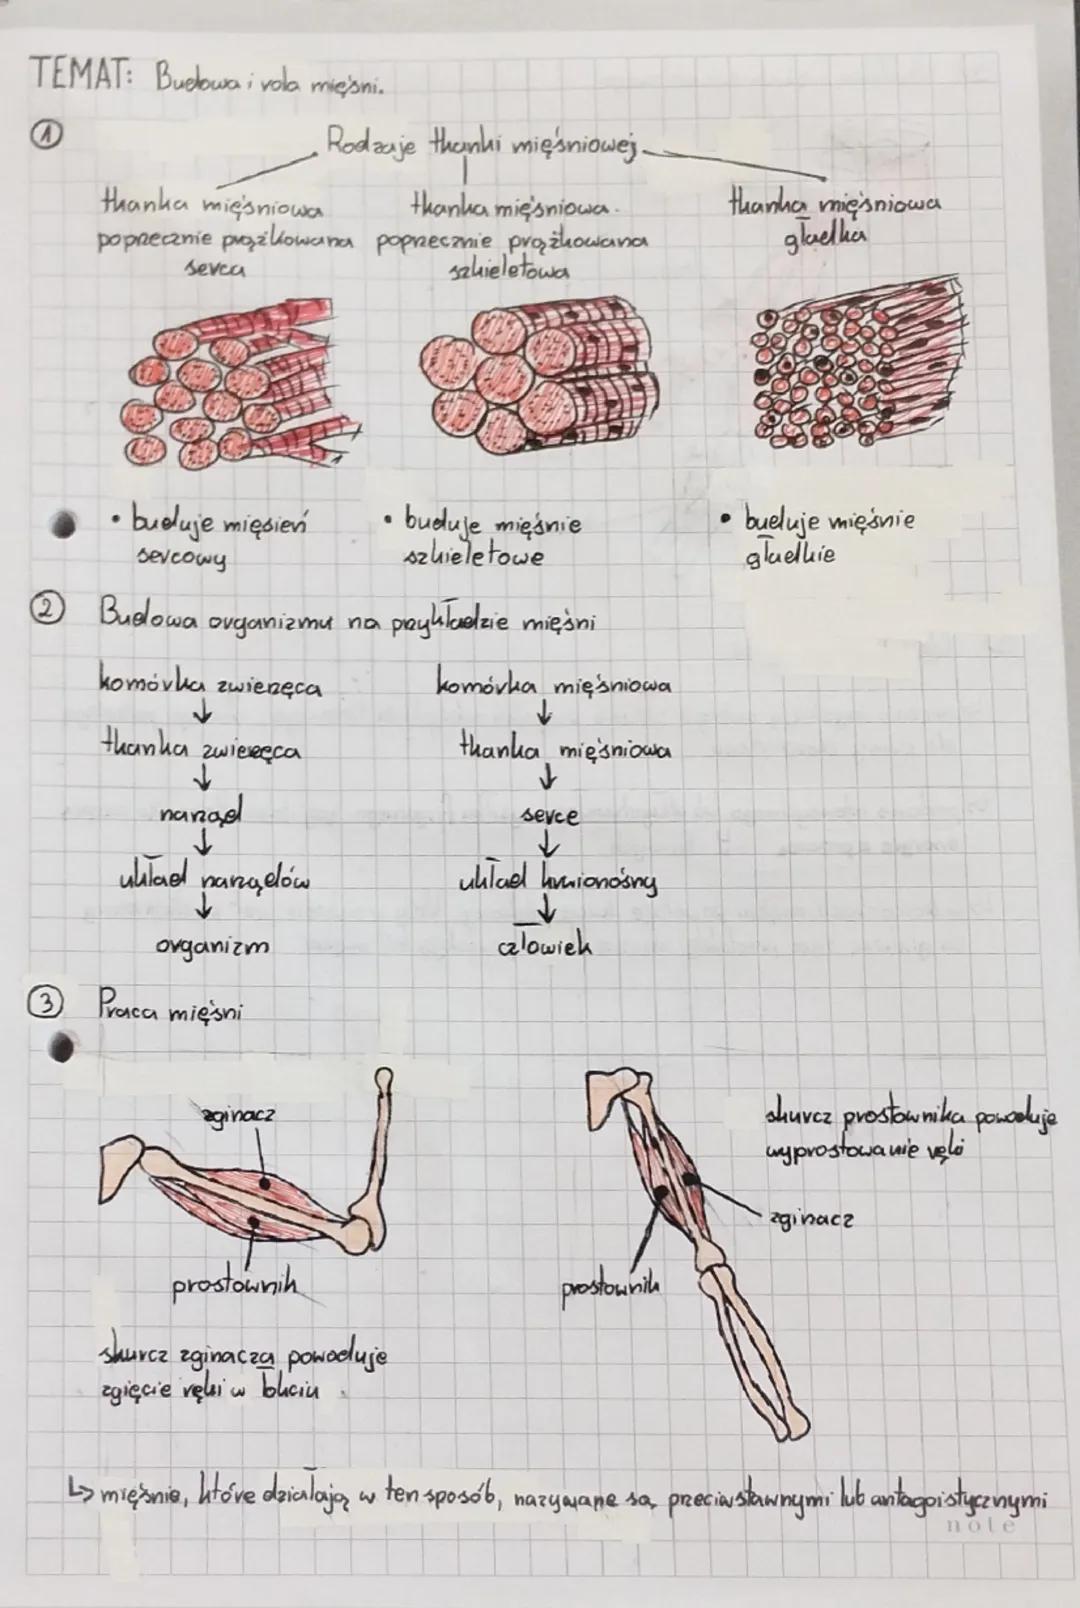 TEMAT: Budowa i rola mięśni.
1
Rodzaje tkanki mięśniowej
tkanka mięśniowa
poprzecznie prążkowana
serca
tkanka mięśniowa
poprzecznie prążkowana
szkieletowa
tkanka mięśniowa
gładka
• buduje mięsień
sercowy
• buduje mięśnie
szkieletowe
• buduje mięśnie
gładkie
2 Budowa organizmu na przykładzie mięśni
komórka zwierzęca
↓
tkanka zwierzęca
↓
narząd
↓
układ narządów
↓
organizm
komórka mięśniowa
↓
tkanka mięśniowa
↓
serce
↓
układ krwionośny
↓
człowiek
3 Praca mięśni
zginacz
prostownik
skurcz zginacza powoduje
zgięcie ręki w łokciu
skurcz prostownika powoduje
wyprostowanie ręki
zginacz
prostownik
↳ mięśnie, które działają w ten sposób, nazywane są przeciwstawnymi lub antagoistycznymi
note